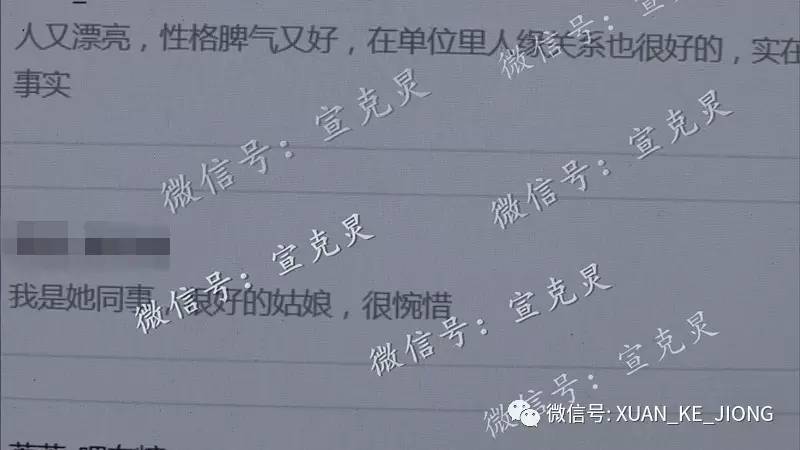 人又漂亮，性格脾气又好，在单位里人缘关系也很好的，实在
事实
微信号：宣克炅
微信号：宣克炅
微信号：宣克炅
我是她同事，很好的姑娘，很惋惜
微信号：宣克炅
微信号：宣克炅
微信号：宣克炅
微信号: XUAN_KE_JIONG